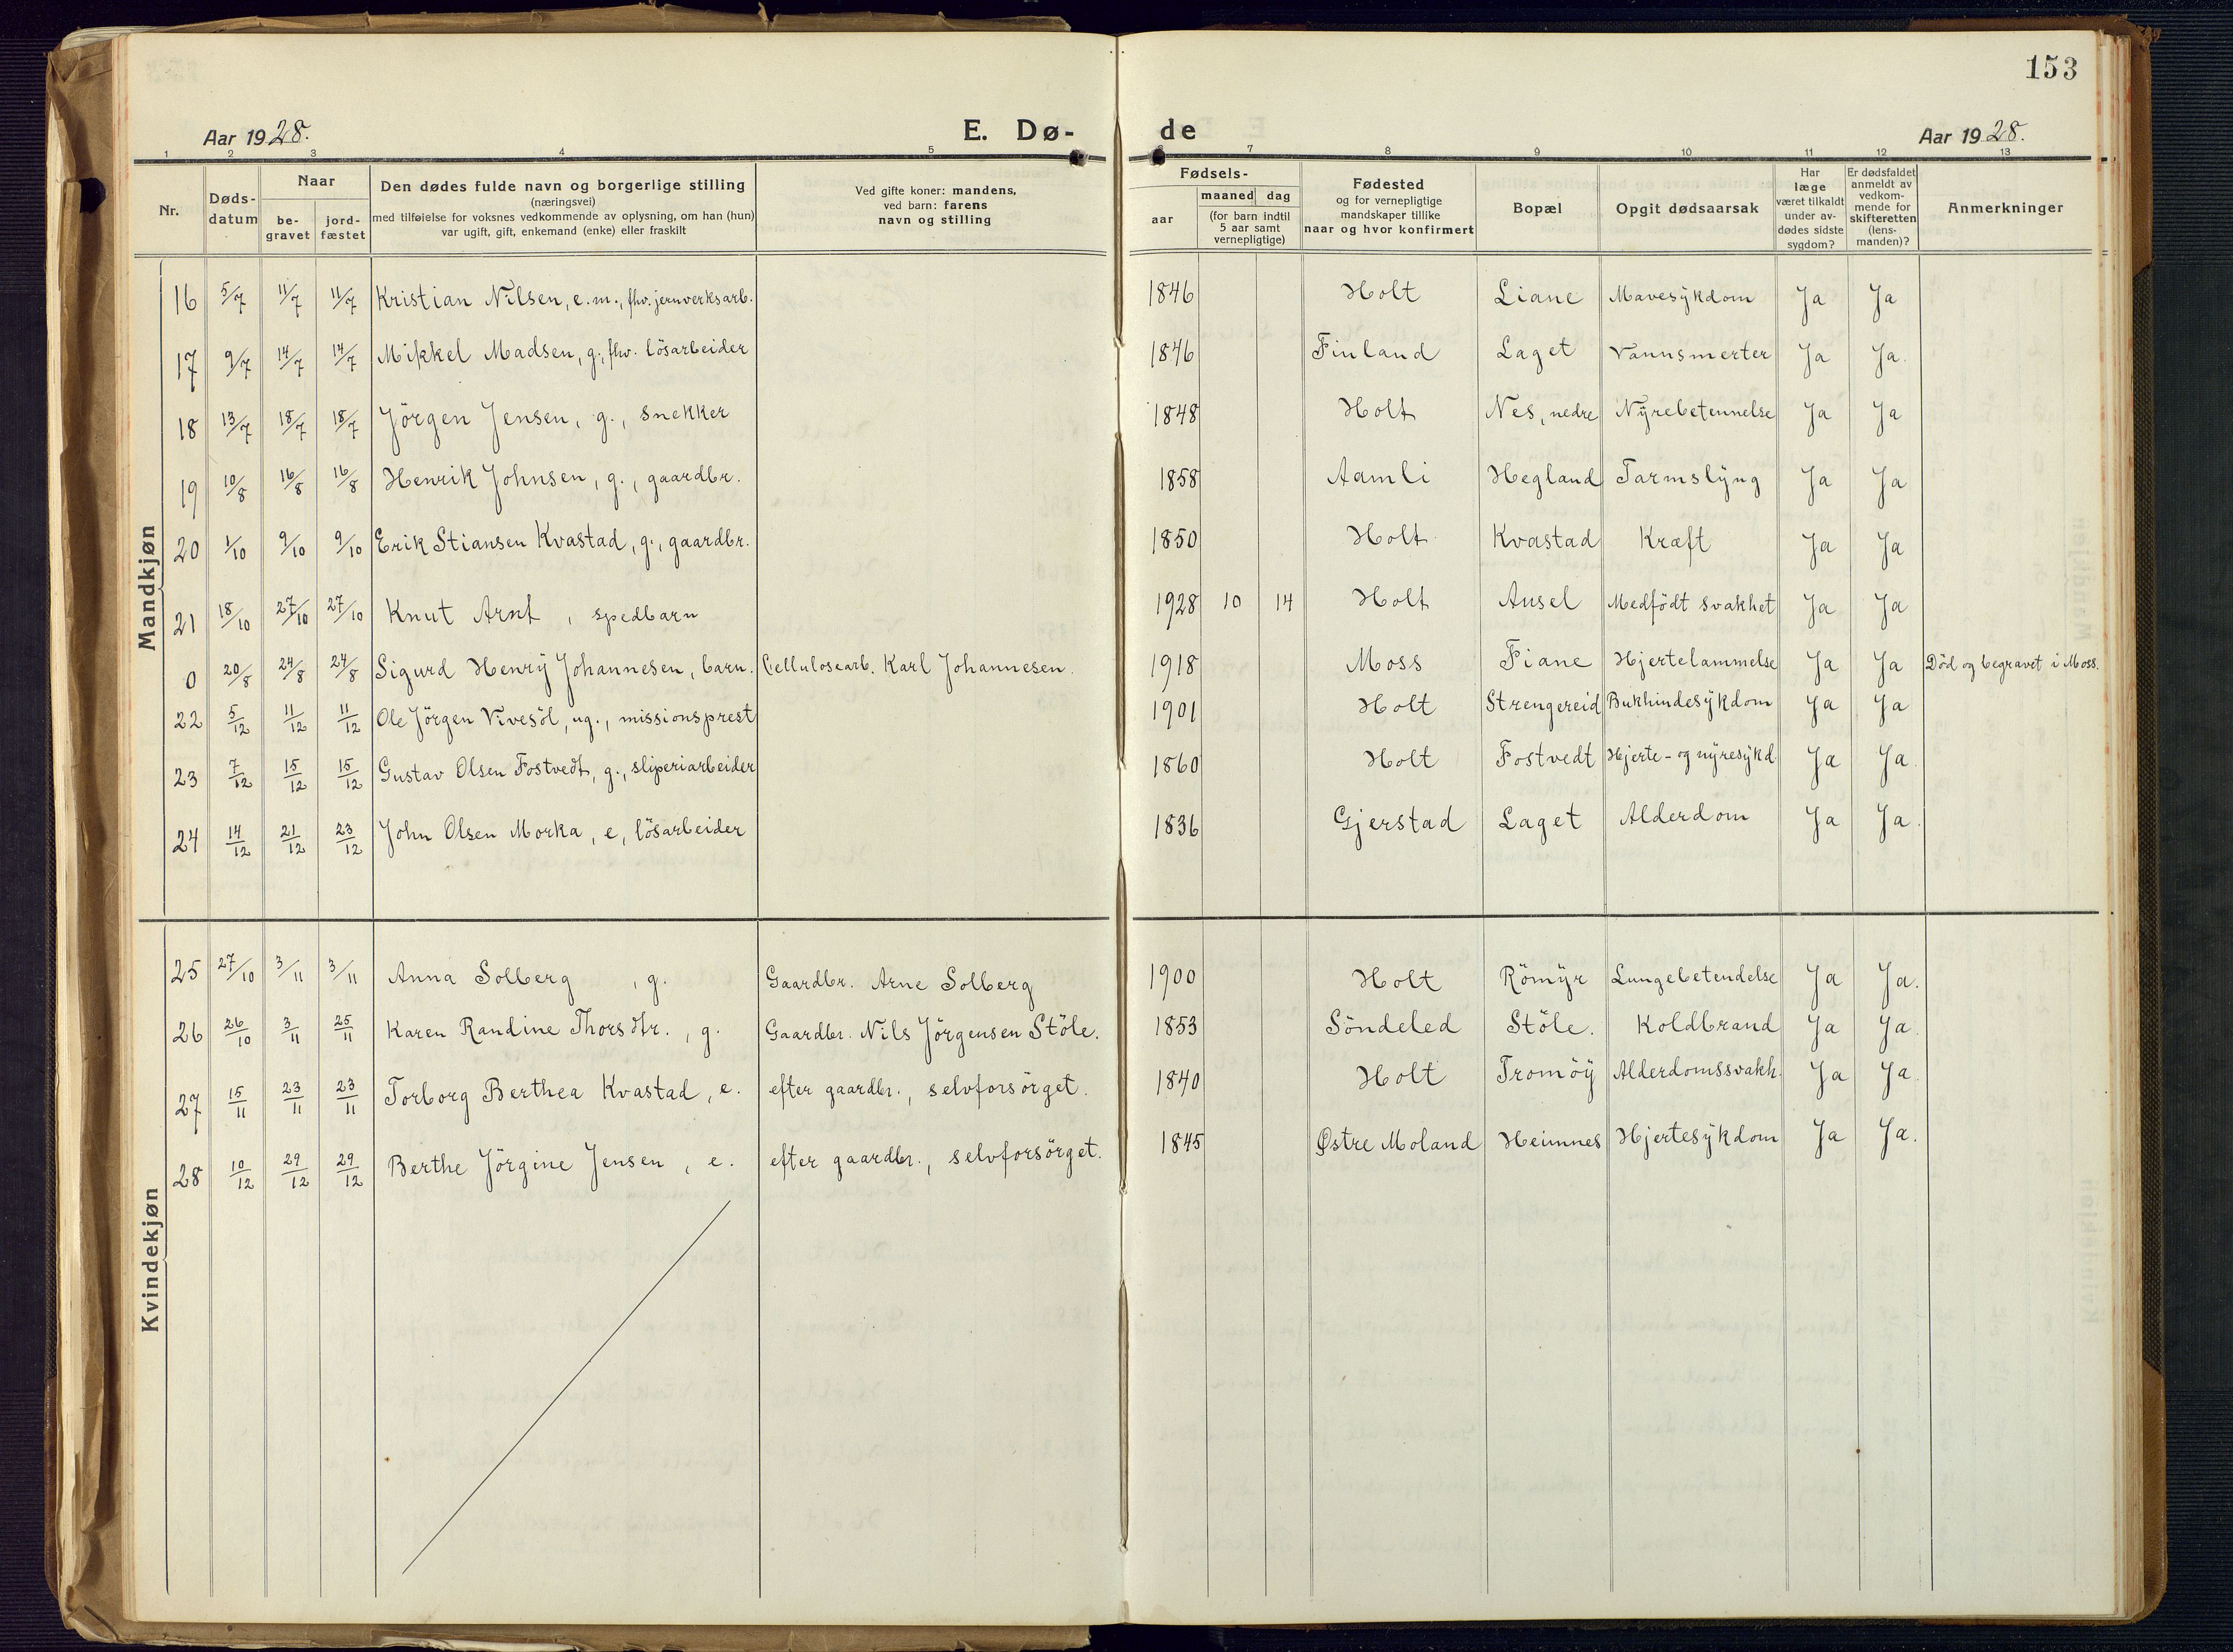 153
Aar 1928. E. Dø- de Aar 1928.
1 2 3 4 5 6 7 8 9 10 11 12 13
Nr.
Døds-
datum
Naar
be-
gravet
jord-
fæstet
Den dødes fulde navn og borgerlige stilling
(næringsvei)
med tilføielse for voksnes vedkommende av oplysning, om han (hun)
var ugift, gift, enkemand (enke) eller fraskilt
Ved gifte koner: mandens,
ved barn: farens
navn og stilling
Fødsels-
aar
maaned dag
(for barn indtil
5 aar samt
vernepligtige)
Fødested
og for vernepligtige
mandskaper tillike
naar og hvor konfirmert
Bopæl
Opgit dødsaarsak
Har
læge
været tilkaldt
under av-
dødes sidste
sygdom?
Er dødsfaldet
anmeldt av
vedkom-
mende for
skifteretten
(lens-
manden)?
Anmerkninger
Mandkjøn
16 5/7 11/7 11/7 Kristian Nilsen, e.m., fhv. jernverksarb. 1846 Holt Liane Mavesykdom Ja Ja
17 9/7 14/7 14/7 Mikkel Madsen, g., fhv. lösarbeider 1846 Finland Laget Vannsmerter Ja Ja.
18 13/7 18/7 18/7 Jörgen Jensen, g., snekker 1848 Holt Nes, nedre Nyrebetennelse Ja Ja
19 10/8 16/8 16/8 Henrik Johnsen, g., gaardbr. 1858 Aamli Hegland Tarmslyng Ja Ja
20 1/10 9/10 9/10 Erik Stiansen Kvastad, g., gaardbr. 1850 Holt Kvastad Kræft Ja Ja
21 18/10 27/10 27/10 Knut Arnt, spedbarn 1928 10 14 Holt Ausel Medfödt svakhet Ja Ja
0 20/8 24/8 24/8 Sigurd Henry Johannesen, barn. Cellulosearb. Karl Johannesen. 1918 Moss Fiane Hjertelammelse Ja Ja Död og begravet i Moss.
22 5/12 11/12 11/12 Ole Jörgen Vivesöl, ug., missionsprest 1901 Holt Strengereid Bukhindesykdom Ja Ja
23 7/12 15/12 15/12 Gustav Olsen Fostvedt, g., sliperiarbeider 1860 Holt Fostvedt Hjerte- og nyresykd Ja Ja.
24 14/12 21/12 23/12 John Olsen Morka, e, lösarbeider 1836 Gjerstad Laget Alderdom Ja Ja.
Kvindekjøn
25 27/10 3/11 3/11 Anna Solberg, g. Gaardbr. Arne Solberg 1900 Holt Römyr Lungebetendelse Ja Ja.
26 26/10 3/11 25/11 Karen Randine Thorsdtr., g. Gaardbr. Nils Jörgensen Stöle. 1853 Söndeled Stöle. Koldbrand Ja Ja.
27 15/11 23/11 23/11 Torborg Berthea Kvastad, e. efter gaardbr., selvforsörget. 1840 Holt Tromöy Alderdomssvakh. Ja Ja.
28 10/12 29/12 29/12 Berthe Jörgine Jensen, e. efter gaardbr., selvforsörget. 1845 Østre Moland Heimnes Hjertesykdom Ja Ja.